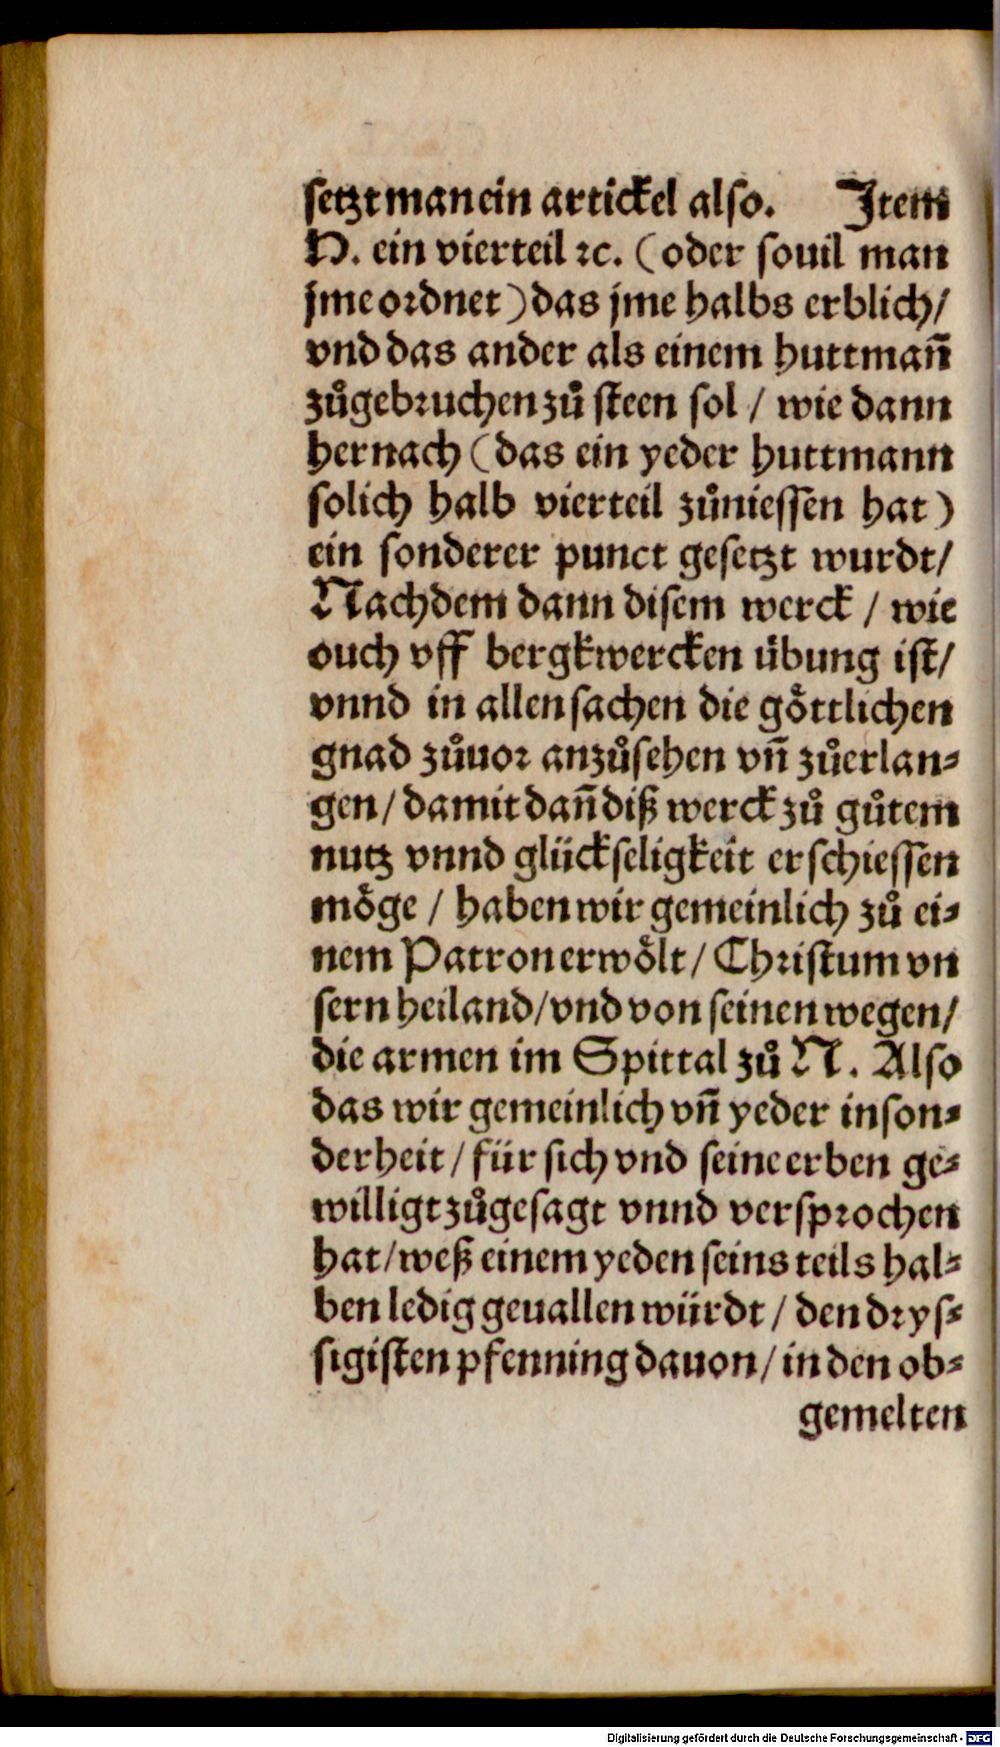 setzt man ein artickel also. Item
H. ein vierteil ꝛc. (oder souil man
jme oꝛdnet) das jme halbs erblich/
vnd das ander als einem huttman̄
zůgebꝛuchen zů steen sol / wie dann
hernach (das ein yeder huttmann
solich halb vierteil zůniessen hat)
ein sonderer punct gesetzt wurdt/
Nachdem dann disem werck / wie
ouch vff bergkwercken übung ist/
vnnd in allen sachen die göttlichen
gnad zůuoꝛ anzůsehen vn̄ zůerlan⸗
gen/ damit dan̄ diß werck zů gůtem
nutz vnnd glückseligkeit erschiessen
möge / haben wir gemeinlich zů ei⸗
nem Patron erwölt/ Chꝛistum vn
sern heiland/vnd von seinen wegen/
die armen im Spittal zů N. Also
das wir gemeinlich vn̄ yeder inson⸗
derheit/ für sich vnd seine erben ge⸗
willigt zůgesagt vnnd verspꝛochen
hat/weß einem yeden seins teils hal⸗
ben ledig geuallen würdt / den dꝛys⸗
sigisten pfenning dauon/ in den ob⸗
gemelten
Digitalisierung gefördert durch die Deutsche Forschungsgemeinschaft - DFG